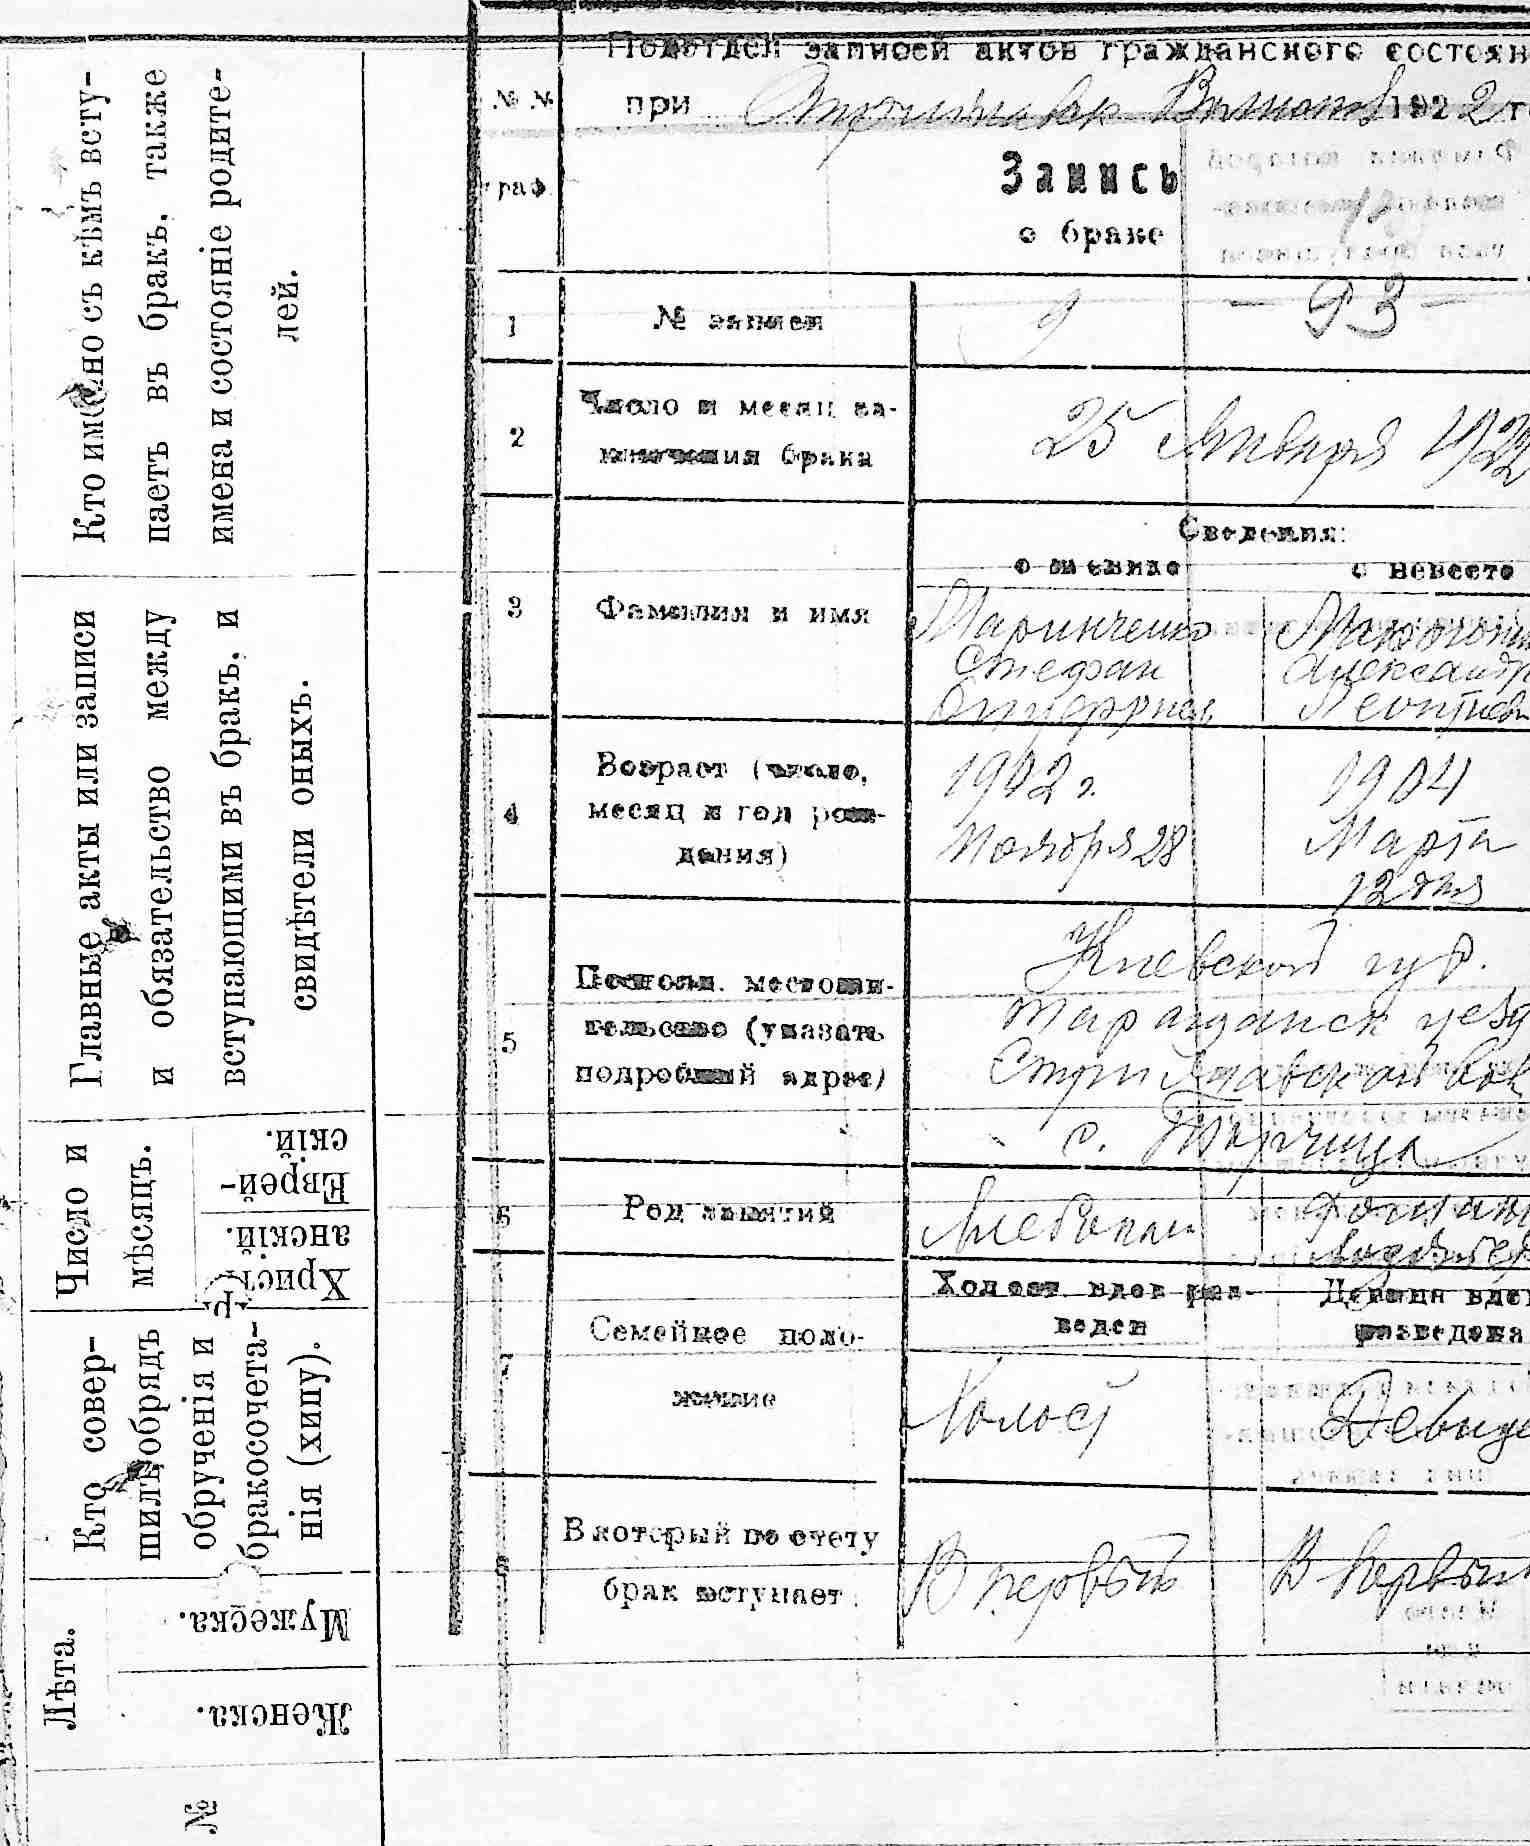 Кто именно съ кѣмъ всту-
паетъ въ бракъ, также
имена и состояніе родите-
лей.
Главные акты или записи
и обязательство между
вступающими въ бракъ, и
свидѣтели оныхъ.
Число и
мѣсяцъ.
Еврей-
скій.
Христі
анскій.
Кто совер-
шилъ обрядъ
обрученія и
бракосочета-
нія (хипу).
Лѣта.
Мужеска.
Женска.
№
Подотдел записей актов гражданского состоян
№ №
граф
при 1922 го
Запись
о браке
1
№ записи
— 93 —
2
Число и месяц за-
ключения брака
25 Января 1922
Сведения:
о женихе
о невесте
3
Фамилия и имя
Маринченко
Стефан
Александр
Леонтиев
4
Возраст (число,
месяц и год рож-
дения)
1902 г.
Ноября 28
1904
Марта
12 дня
5
Постоян. местожи-
тельство (указать
подробный адрес)
Киевской губ.
Таращанск уезд
Стрижавской вол
с. Торчица
6
Род занятий
Хлебопаш
Холост вдов раз-
веден
Девица вдо
разведена
7
Семейное поло-
жение
Холост
Девице
8
В который по счету
брак вступает
В первый
В первый